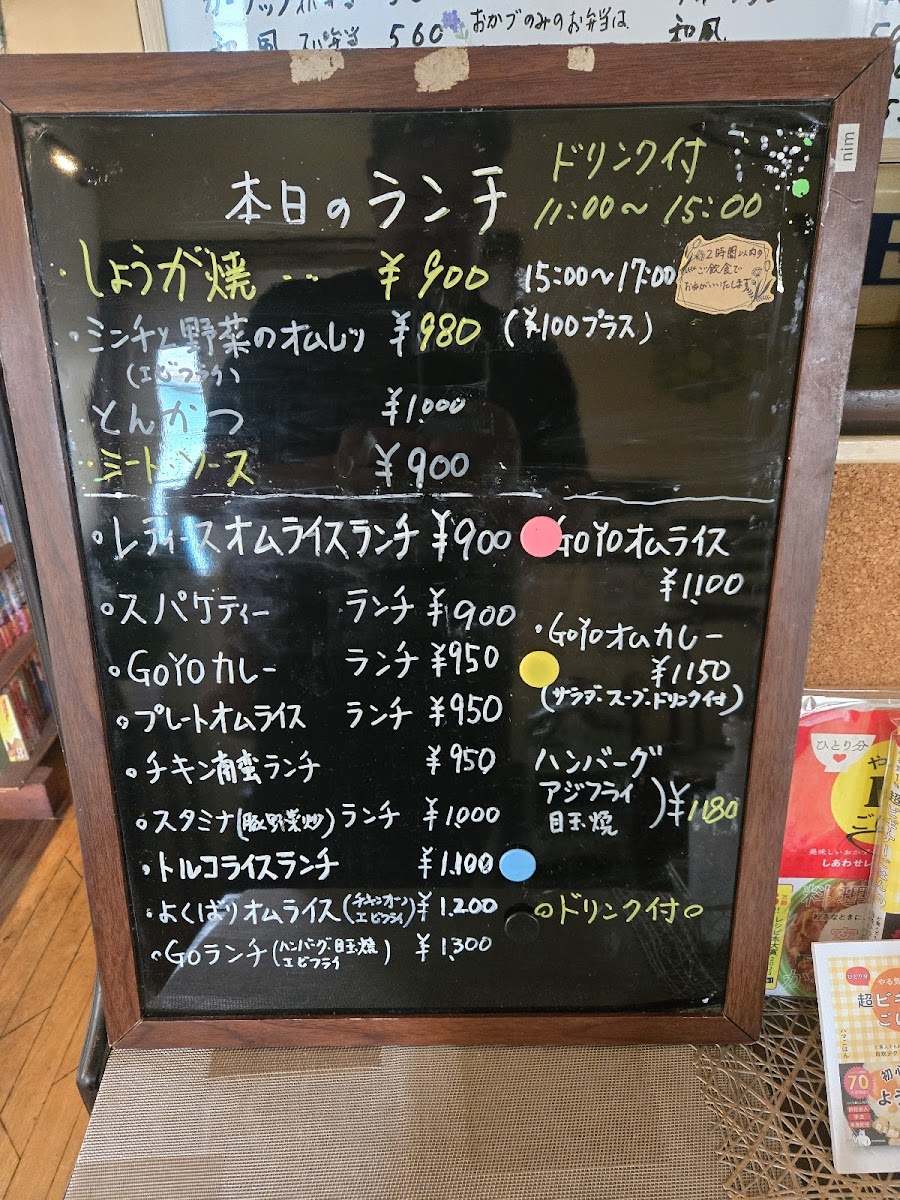 560
おかづのみのお弁当は
和風
本日のランチ
ドリンク付
11:00～15:00
・しょうが焼 … ¥900
15:00～17:00
(¥100プラス)
2時間以内の
ご飲食で
おねがいいたします
・ミンチと野菜のオムレツ ¥980
(エビフライ)
とんかつ ¥1.000
ミートソース ¥900
○レディースオムライスランチ ¥900
○スパゲティー ランチ ¥900
○GOYOカレー ランチ ¥950
○プレートオムライス ランチ ¥950
○チキン南蛮ランチ ¥950
○スタミナ(豚野菜炒)ランチ ¥1.000
・トルコライスランチ ¥1.100
○よくばりオムライス(チキンオーエビフライ) ¥1.200
○GOランチ(ハンバーグ・目玉焼 エビフライ) ¥1.300
GOYOオムライス
¥1.100
・GOYOオムカレー
¥1150
(サラダ・スープ・ドリンク付)
ハンバーグ
アジフライ
目玉焼
)¥1180
○ドリンク付○
nim
ひとり分
しあわせレ
ひとり分
超ビ
ごは
70
初
よう